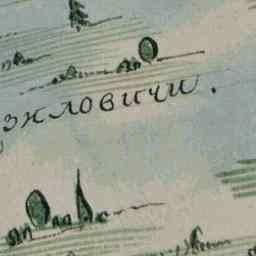 зиловичи.